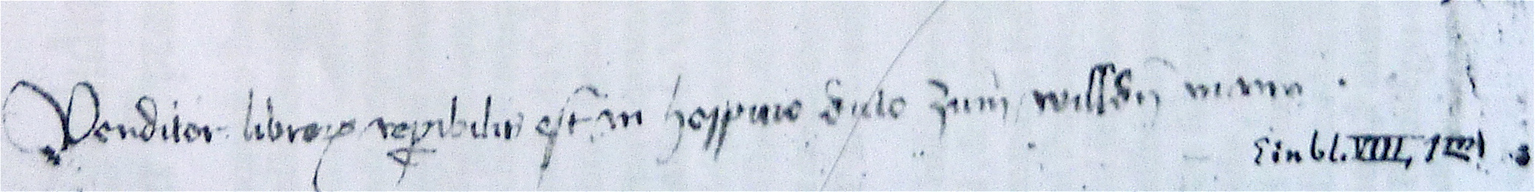 Venditor libroꝝ reꝑibilis est in hospitio dicto zum willden mann .
Einbl. VIII,